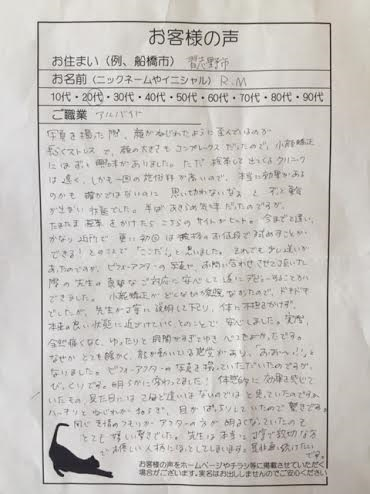 お客様の声
お住まい（例、船橋市） 習志野市
お名前（ニックネームやイニシャル） R.M
10代・20代・30代・40代・50代・60代・70代・80代・90代
ご職業 アルバイト
写真を撮った際、顔がねじれたように歪んでいるのが
ストレスで、顔の大きさもコンプレックスだったので、小顔矯正
にはずっと興味がありました。ただ 検索して出てくるクリニック
は遠く、しかも一回の施術料が高いので、本当に効果がある
のかも確かではないのに 思い切れないなぁ と
状態でした。半ばあきらめ気味だったのですが、
たまたま 検索をかけたらこちらのサイトがヒット。今までと違い、
かなり近所で、更に初回は お値段で試すことが
できる！とのことで「ここだ」と思いました。それでも少し迷いが
あったのですが、ビフォーアフターの写真や、お問い合わせさせて頂いた
際の先生の ご対応に安心して遂にデビューすることが
できました。小顔矯正がどんなものか なかったので、ドキドキ
でしたが、先生が丁寧に説明して下さり、体に
本来の良い状態に近づけていくとのことで 安心しました。実際、
全然痛くなく、ゆったりと
なせか とても暖かく、 感覚があり、「おお〜！」と
なりました。ビフォーアフターの写真を撮っていただいたのですが、
びっくりです。明らかに変わってました！体感的に効果を感じて
いたもの、見た目には さほど違いはないのでは と思っていたのですが、
ハッキリと ねじれが 、目がぱっちりしていたので驚きです。
アフターの方が明るくなっていたのも
とても嬉しい驚きでした。先生は本当に丁寧で親切な方
で 優しい人柄に
お客様の声をホームページやチラシ等に掲載させていただく
場合がございます。実名はお出ししませんのでご安心ください